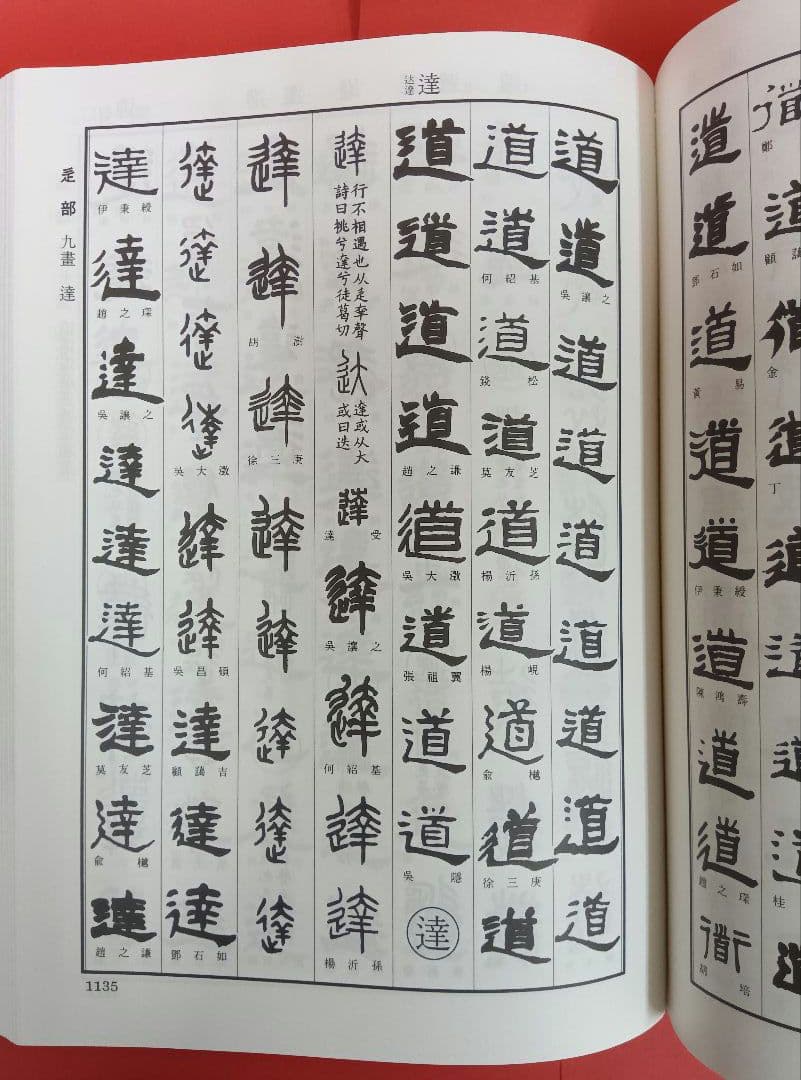 鄭
顧藹
金
丁
桂
道
道
鄧石如
道
黃易
道
道
伊秉綬
道
陳鴻壽
道
道
趙之琛
胡培
达逹
達
道
道
吳讓之
道
道
道
道
道
道
道
道
道
何紹基
道
錢松
道
莫友芝
道
楊沂孫
道
楊峴
道
俞樾
道
徐三庚
道
道
道
道
道
趙之謙
道
吳大澂
道
張祖翼
道
道
吳隱
達
達
行不相遇也从辵羍聲
詩曰挑兮達兮徒葛切
达
達或从大
或曰迭
達
達受
達
吳讓之
達
何紹基
達
達
楊沂孫
達
達
胡澍
達
徐三庚
達
達
達
達
達
達
達
達
達
吳大澂
達
達
吳昌碩
達
顧藹吉
達
達
鄧石如
達
伊秉綬
達
趙之琛
達
吳讓之
達
達
達
何紹基
達
莫友芝
達
俞樾
達
趙之謙
辵部 九畫 達
1135